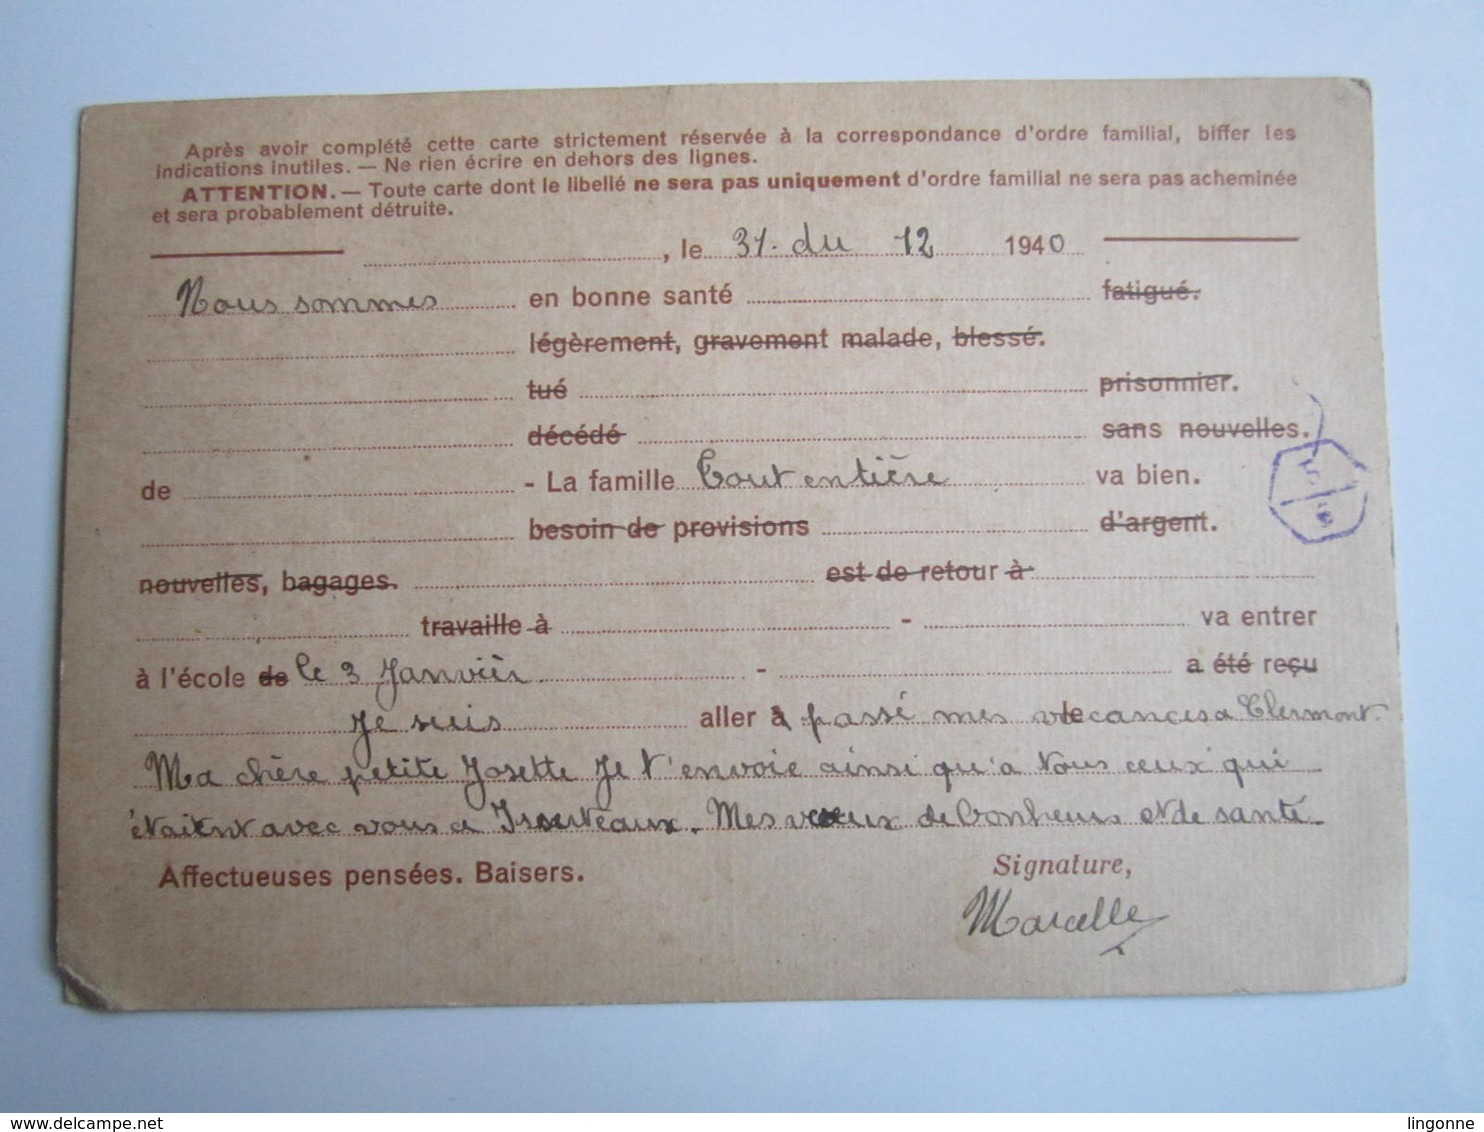 Après avoir complété cette carte strictement réservée à la correspondance d'ordre familial, biffer les
indications inutiles. — Ne rien écrire en dehors des lignes.
ATTENTION. — Toute carte dont le libellé ne sera pas uniquement d'ordre familial ne sera pas acheminée
et sera probablement détruite.
, le 31. du 12 1940
Nous sommes en bonne santé fatigué.
légèrement, gravement malade, blessé.
tué prisonnier.
décédé sans nouvelles.
de - La famille tout entière va bien.
besoin de provisions d'argent.
nouvelles, bagages. est de retour à
travaille à - va entrer
à l'école de le 3 Janvier - a été reçu
Je suis aller à passé mes vacances a Clermont.
Ma chère petite Josette Je t'envoie ainsi qu'a tous ceux qui
étaient avec vous a Mes vœux de bonheur et de santé.
Affectueuses pensées. Baisers. Signature,
Marcelle
delcampe.net
lingonne